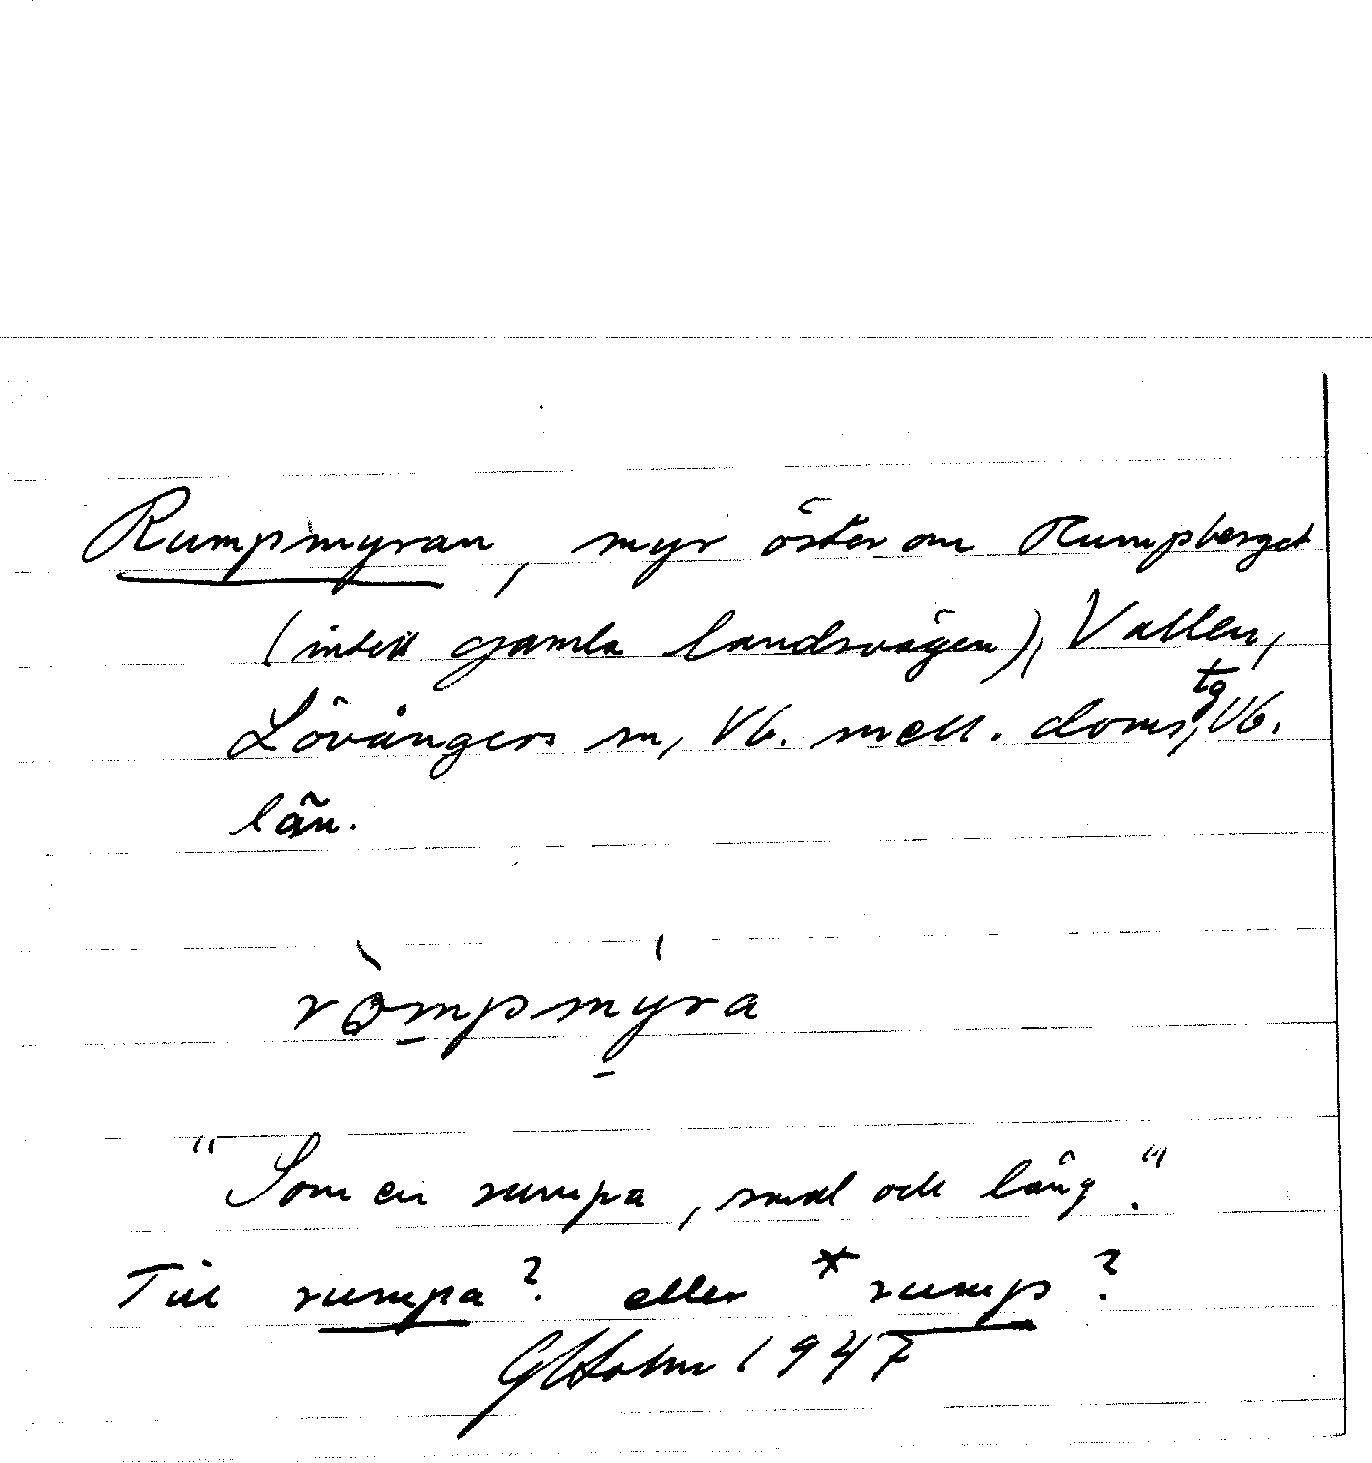 Rumpmyran, myr öster om Rumpberget
(intill gamla landsvägen), Vallen,
Lövångers sn, Vb. mell. doms,tg Vb.
län.
ròmpmýra
"Som en rumpa, smal och lång."
Till rumpa? eller *rump?
GHolm 1947